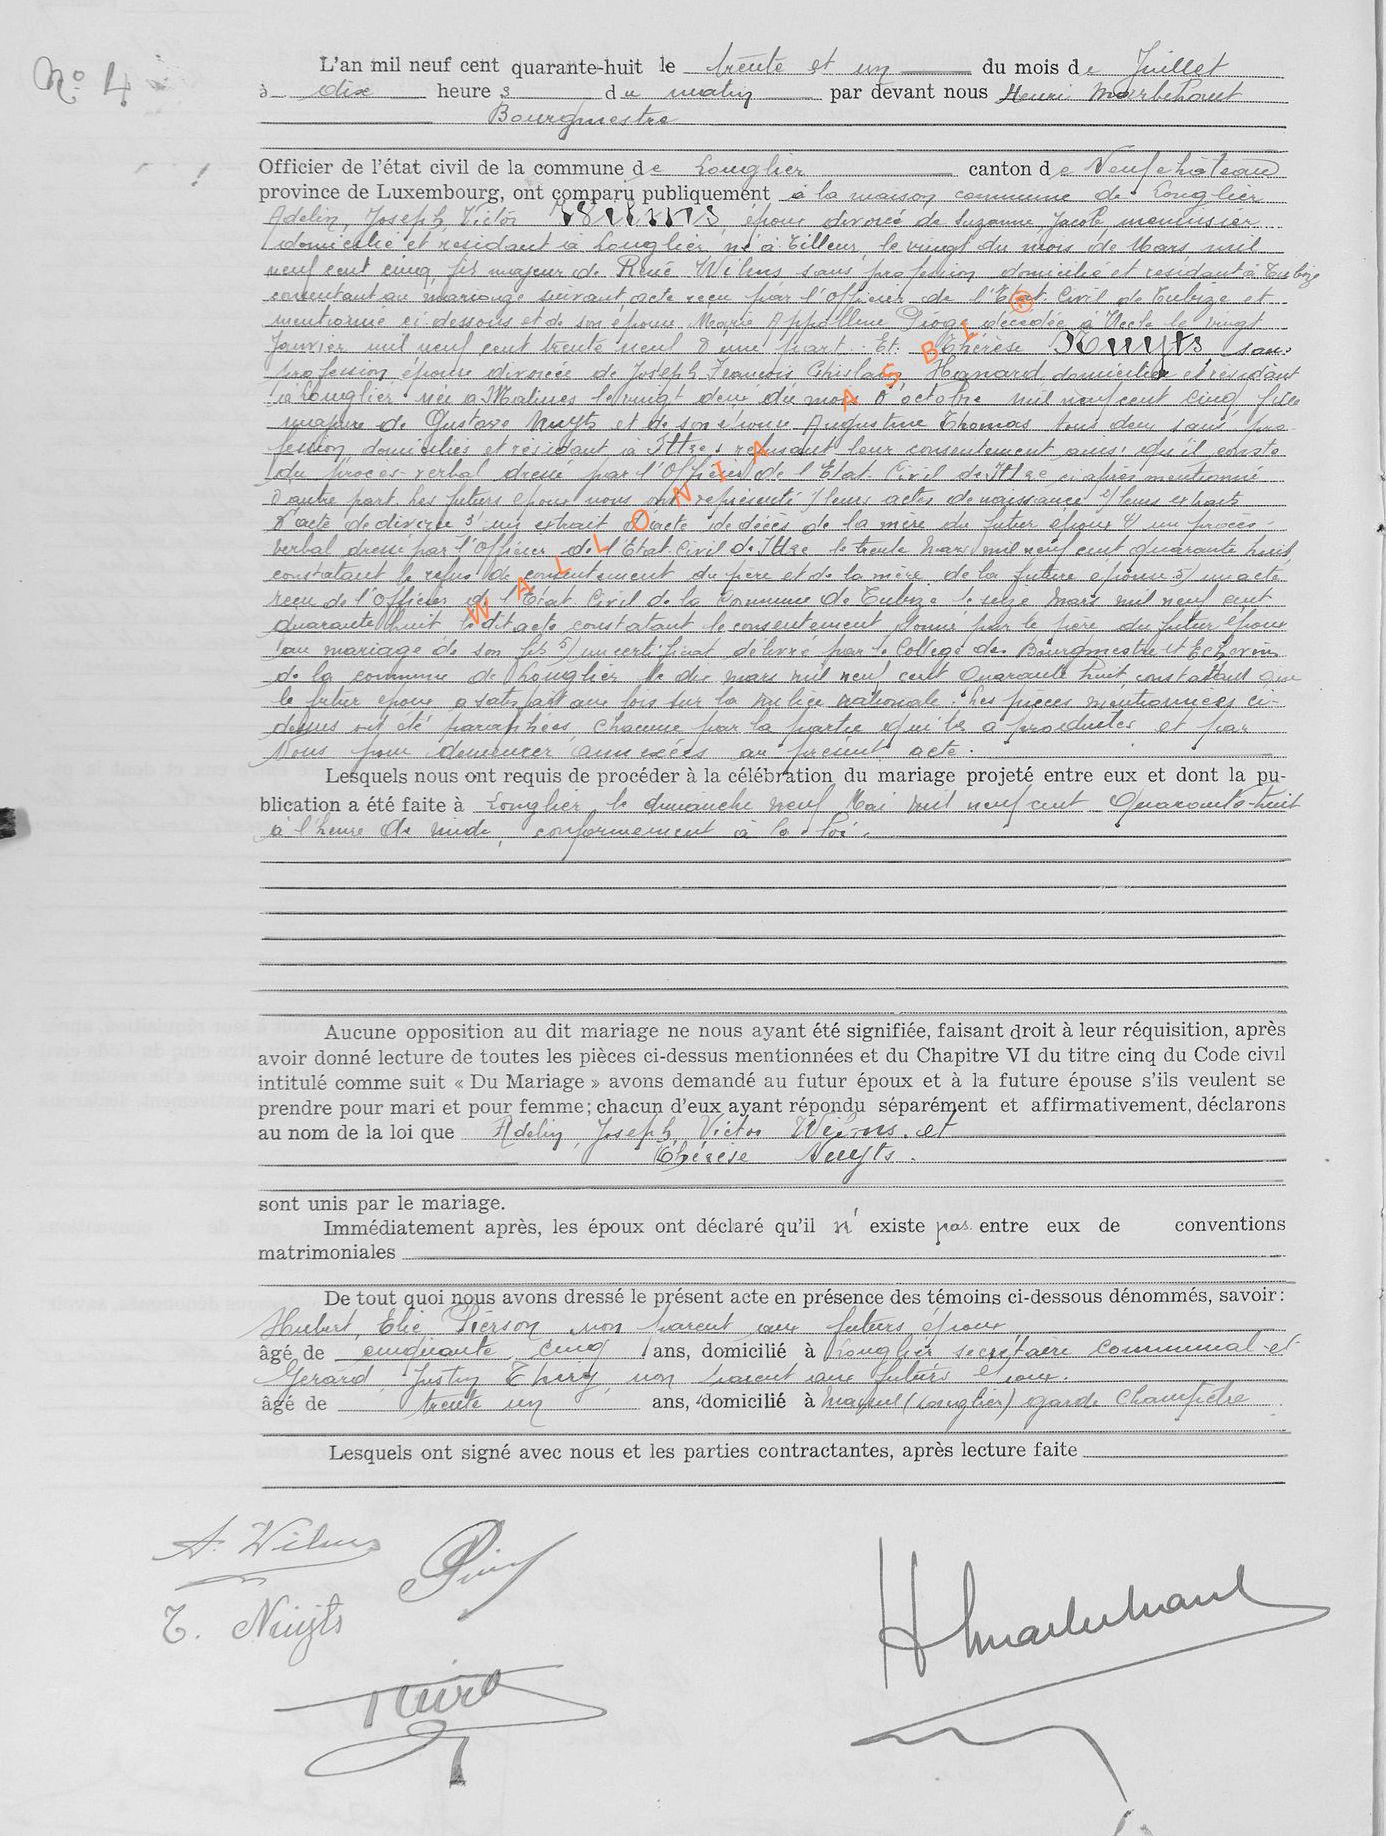 N° 4
L'an mil neuf cent quarante-huit le trente et un du mois de Juillet
à dix heures du matin par devant nous Henri
Bourgmestre
Officier de l'état civil de la commune de Longlier canton de Neufchâteau
province de Luxembourg, ont comparu publiquement à la maison commune de Longlier
Adelin, Joseph, Victor Wilms, époux divorcé de Suzanne Jacob, menuisier
domicilié et résidant à Longlier né à Tilleur, le vingt du mois de Mars mil
neuf cent cinq fils majeur de René Wilms sans profession domicilié et résidant à Tubize
consentant au mariage suivant acte reçu par l'Officier de l'Etat Civil de Tubize et
mentionné ci dessous et de son épouse Marie Appolline décédée à Uccle le vingt
Janvier mil neuf cent trente neuf d'une part. Et Thérèse Nuyts, sans
profession, épouse divorcée de Joseph François Ghislain Hanard domiciliée et résidant
à Longlier née à Malines le vingt deux du mois d'octobre mil neuf cent cinq fille
majeure de Gustave Nuyts et de son épouse Augustine Thomas tous deux sans pro-
fession domiciliés et résidant à Ittre, refusant leur consentement ainsi qu'il conste
du procès-verbal dressé par l'Officier de l'Etat Civil de Ittre ci après mentionné
d'autre part. Les futurs époux nous ont représenté 1/ leurs actes de naissance 2/ leurs extraits
d'acte de divorce 3/ un extrait d'acte de décès de la mère du futur époux 4/ un procès-
verbal dressé par l'Officier de l'Etat-Civil de Ittre le trente Mars mil neuf cent quarante huit
constatant le refus de consentement du père et de la mère de la future épouse 5/ un acte
reçu de l'Officier de l'Etat Civil de la Commune de Tubize le seize Mars mil neuf cent
quarante huit le dit acte constatant le consentement donné par le père du futur époux
au mariage de son fils 5/ un certificat délivré par le Collège des Bourgmestre et Echevins
de la commune de Longlier le dix mars mil neuf cent Quarante huit constatant que
le futur époux a satisfait aux lois sur la milice nationale. Les pièces mentionnées ci-
dessus ont été paraphées, chacune par la partie qui les a produites et par
Nous pour demeurer annexées au présent acte.
Lesquels nous ont requis de procéder à la célébration du mariage projeté entre eux et dont la pu-
blication a été faite à Longlier le dimanche neuf Mai mil neuf cent Quarante-huit
à l'heure de midi, conformément à la loi.
Aucune opposition au dit mariage ne nous ayant été signifiée, faisant droit à leur réquisition, après
avoir donné lecture de toutes les pièces ci-dessus mentionnées et du Chapitre VI du titre cinq du Code civil
intitulé comme suit « Du Mariage » avons demandé au futur époux et à la future épouse s'ils veulent se
prendre pour mari et pour femme; chacun d'eux ayant répondu séparément et affirmativement, déclarons
au nom de la loi que Adelin, Joseph, Victor Wilms. et
Thérèse Nuyts.
sont unis par le mariage.
Immédiatement après, les époux ont déclaré qu'il n' existe pas entre eux de conventions
matrimoniales
De tout quoi nous avons dressé le présent acte en présence des témoins ci-dessous dénommés, savoir:
Hubert, Elie Pierson non parent aux futurs époux
âgé de cinquante cinq ans, domicilié à Longlier secrétaire communal et
Gérard, Justin Thiry, non parent aux futurs époux.
âgé de trente un ans, domicilié à (Longlier) garde Champêtre
Lesquels ont signé avec nous et les parties contractantes, après lecture faite
A. Wilms
T. Nuyts
WALLONIA ASBL ®